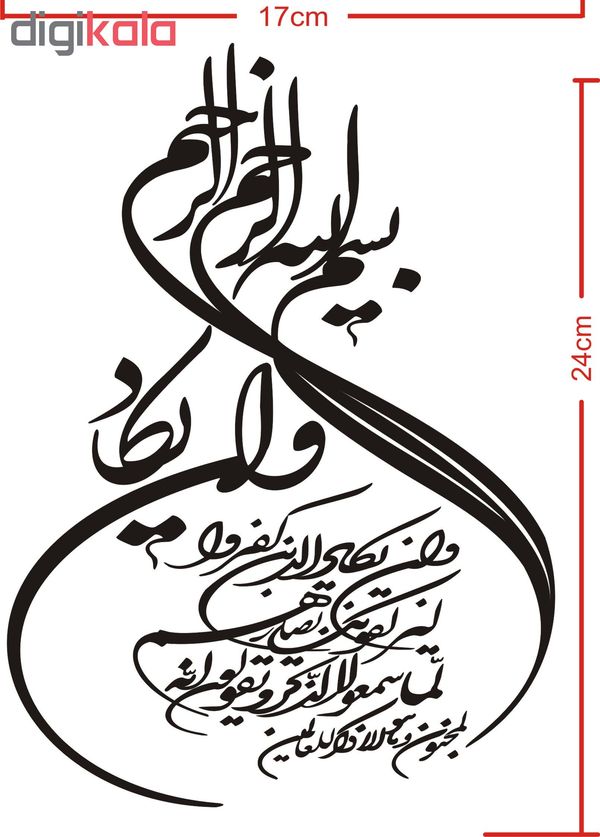 17cm
digikala
24cm
بسم الله الرحمن الرحیم
وان یکاد
وان یکاد الذین کفروا
لیزلقونک بابصارهم
لمّا سمعوا الذکر و یقولون انه
لمجنون و ما هو الا ذکر للعالمین